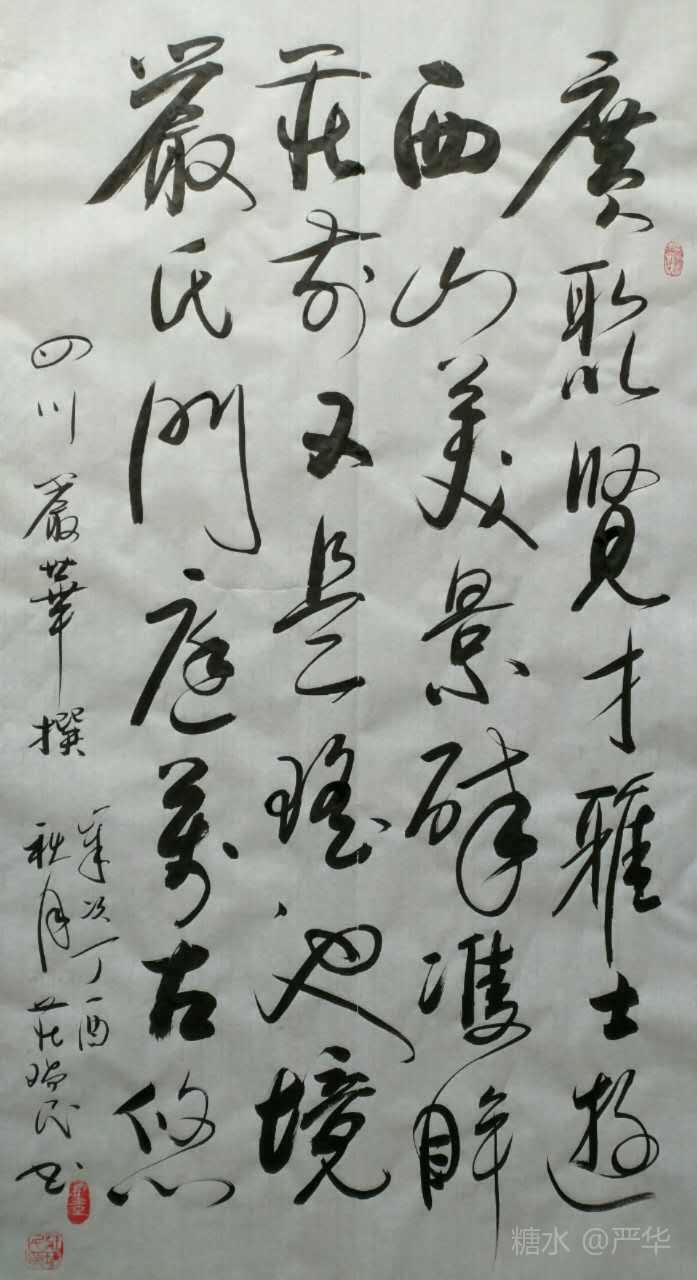 廣聚賢才雅士遊
西山美景醉雙眸
莊前又是瑤池境
嚴氏門庭萬古悠
四川嚴華撰
歲次丁酉
秋月莊瑞民书
糖水 @严华